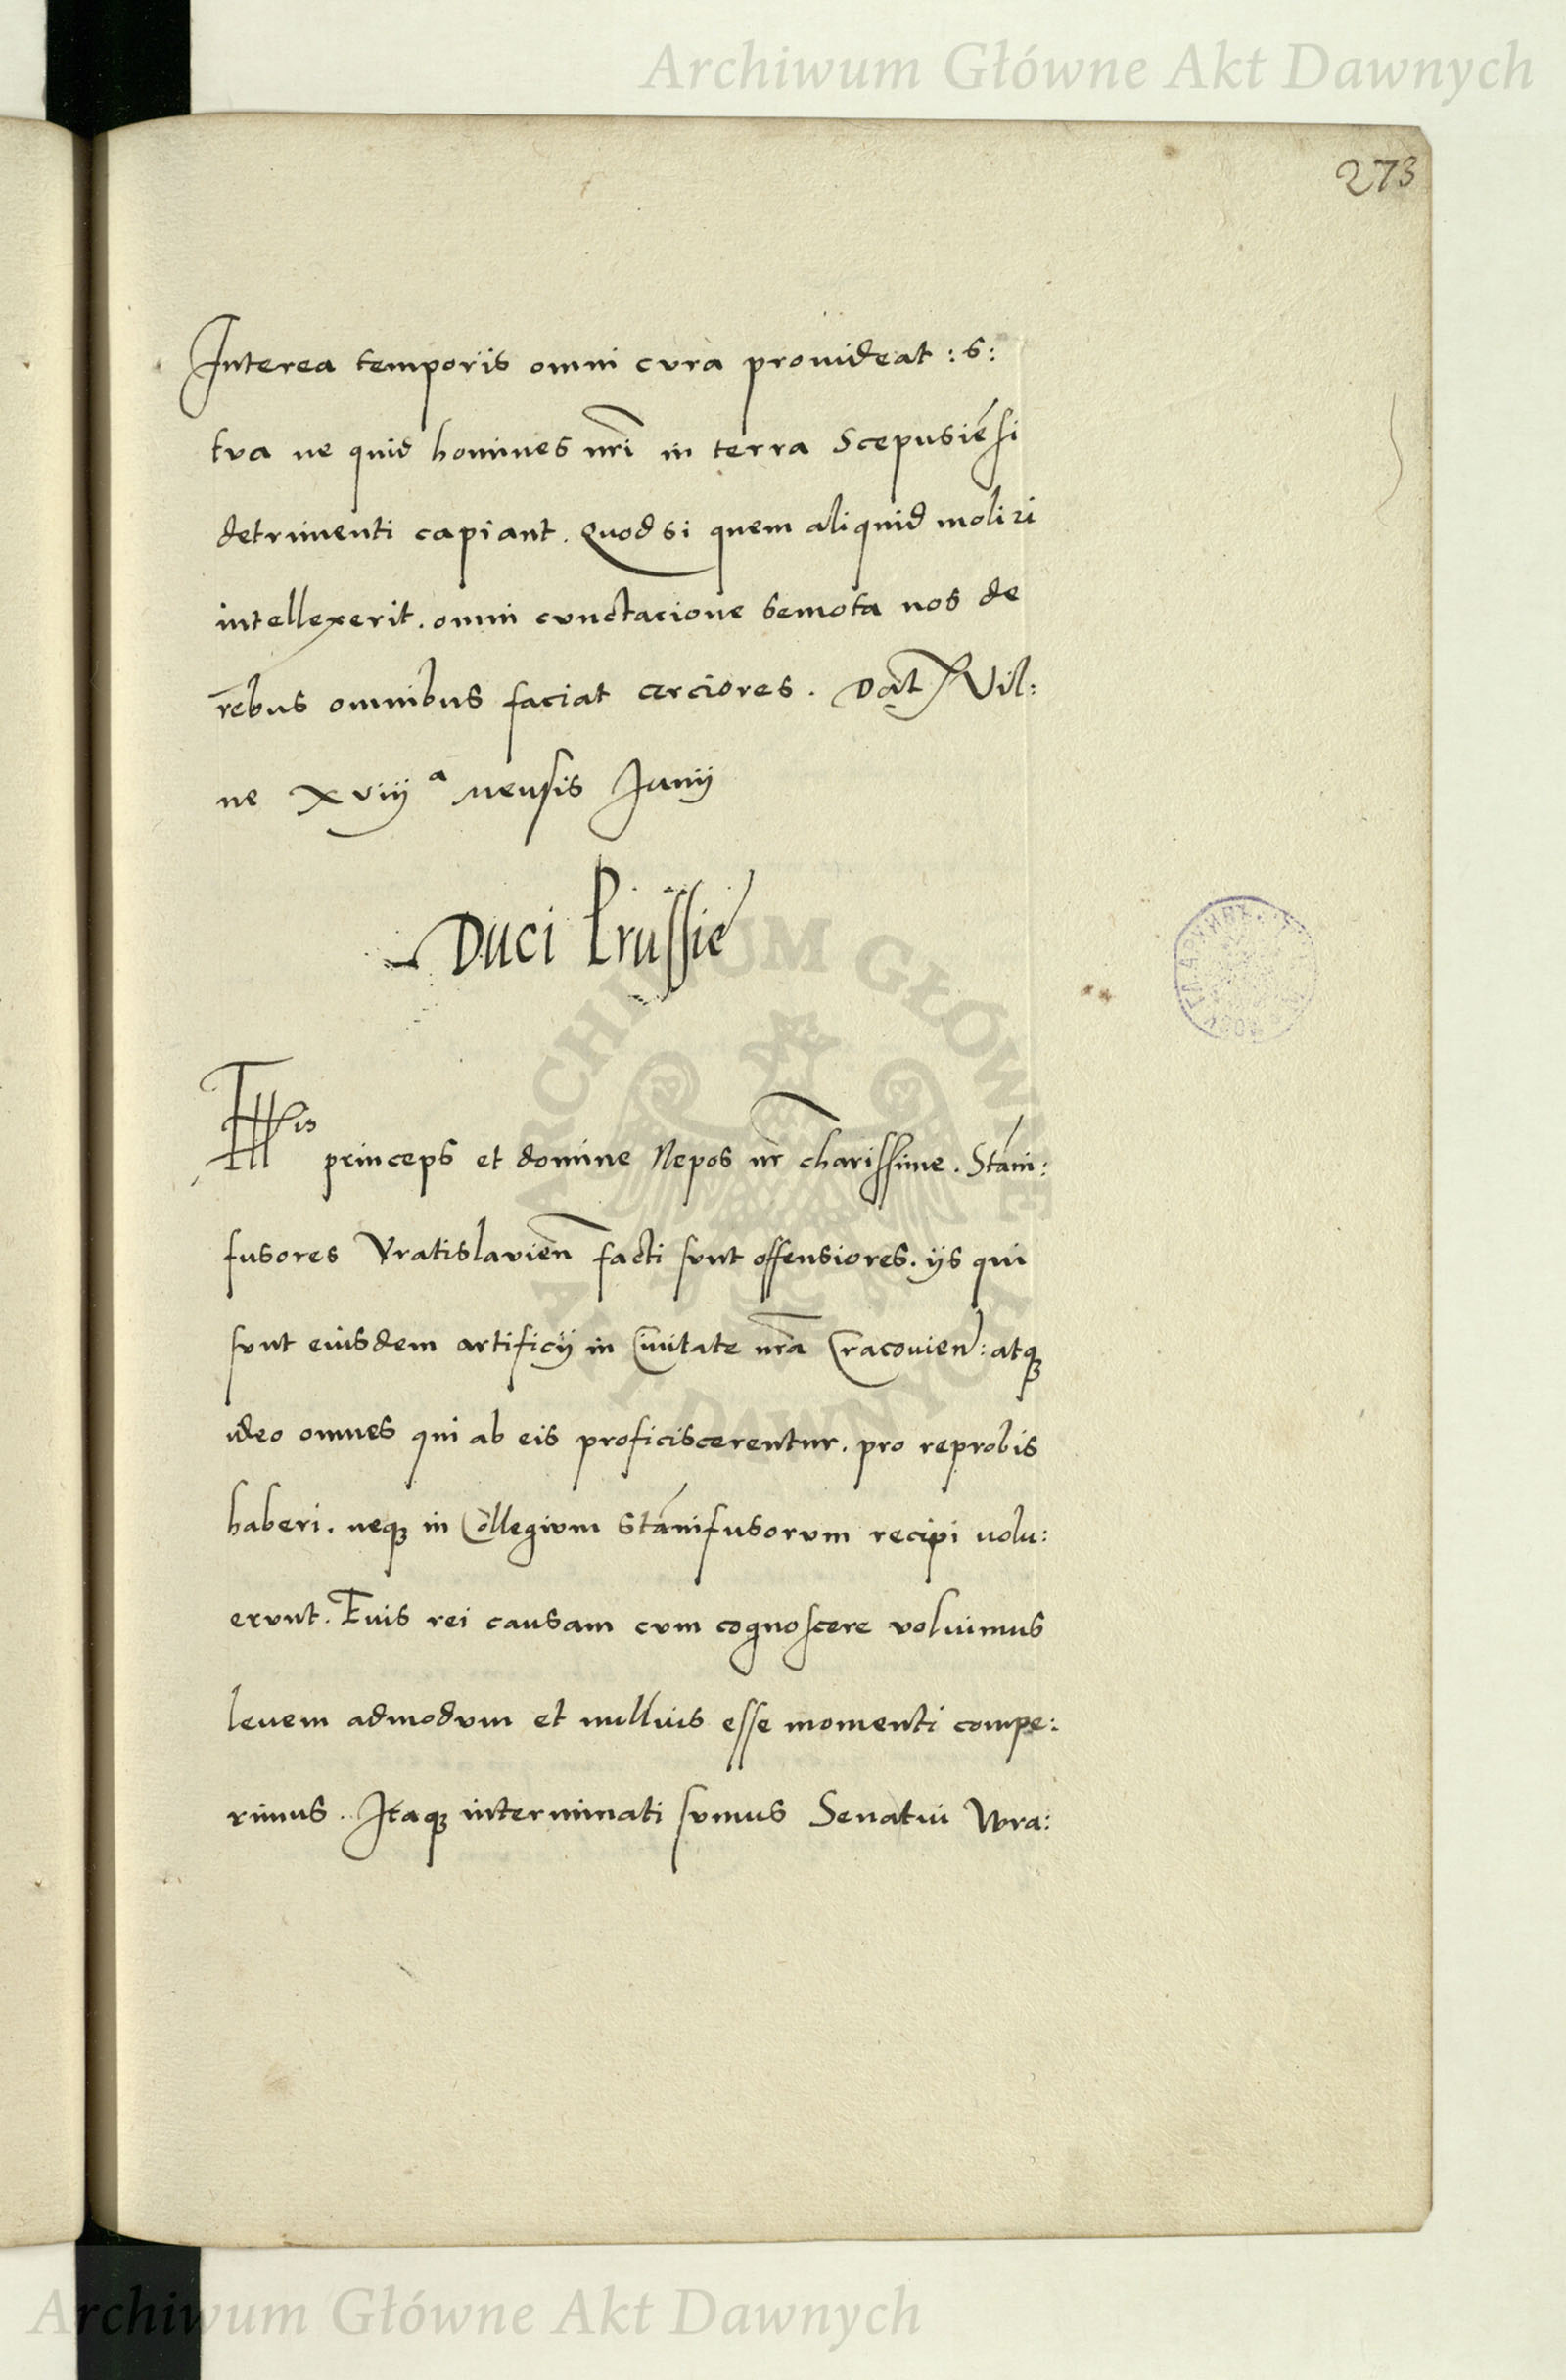 Archiwum Główne Akt Dawnych
273
Interea temporis omni cura prouideat :s:
tua ne quid homines nrī in terra Scepusiēsi
detrimenti capiant. Quod si quem aliquid moliri
intellexerit. omni cunctacione semota nos de
rebus omnibus faciat cerciores. Dat Vil:
ne xviij a mensis Junij
Duci Prussie
Ill is princeps et domine Nepos nr charissime. Stāni:
fusores Vratislavien facti sunt offensiores. ijs qui
sunt eiusdem artificij in Civitate nrā Cracouien: atq
ideo omnes qui ab eis proficiscerentur. pro reprobis
haberi. neq in Collegium stānifusorum recipi uolu:
erunt. Euis rei causam cum cognoscere voluimus
leuem admodum et nullius esse momenti compe:
rimus. Itaq interminati sumus Senatui Wra:
ARCHIWUM GŁÓWNE
AKT DAWNYCH
Archiwum Główne Akt Dawnych